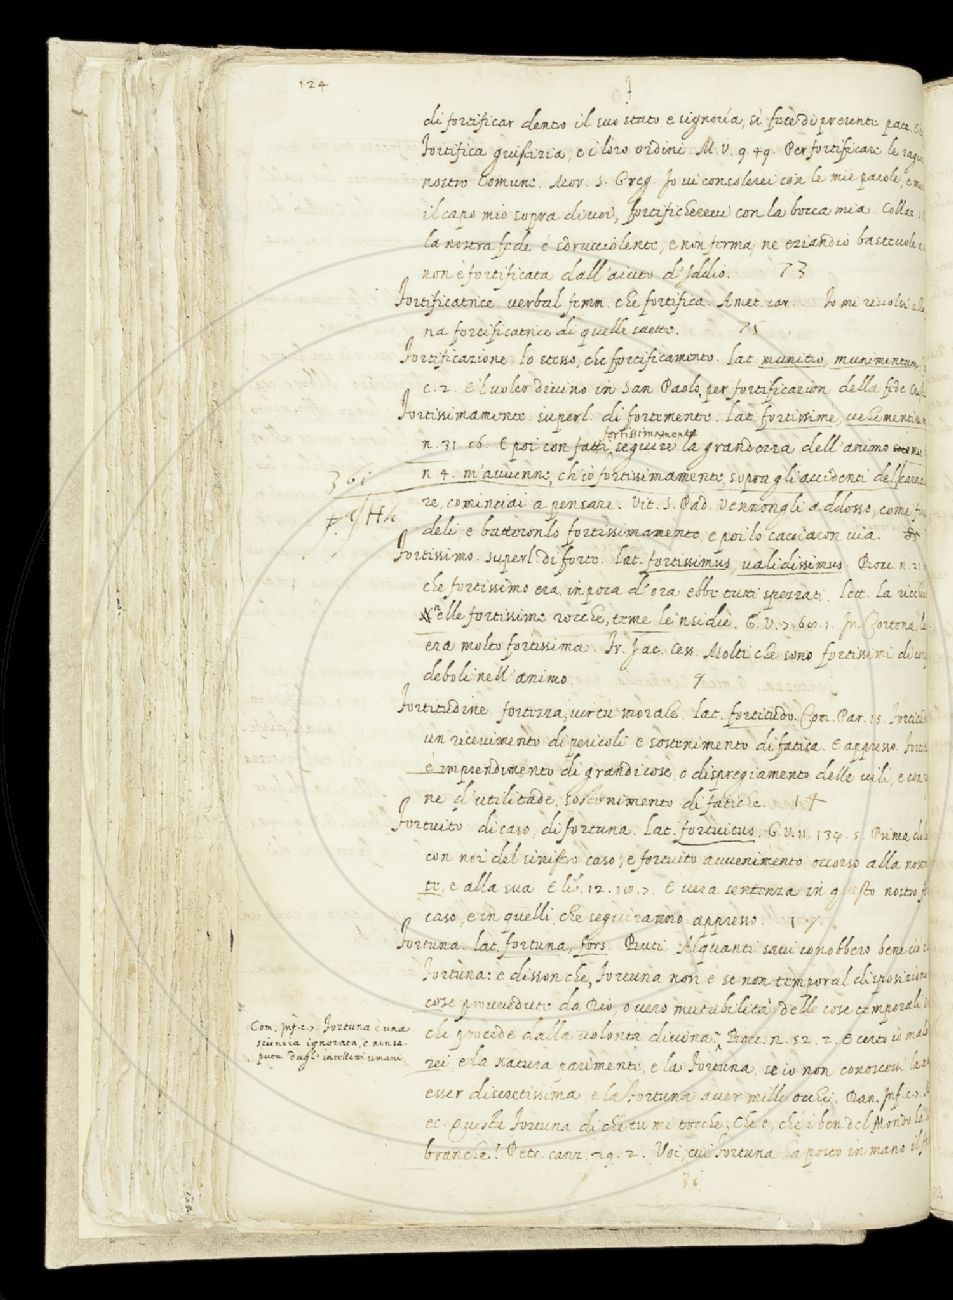 124
F
di fortificar dentro il suo stato e signoria, si fece di presente pace.
Fortifica giustizia, e i loro ordini. M. V. 9. 49. Per fortificare le
nostro Comune. Mor. S. Greg. Io vi consolerei con le mie parole, e
il capo mio sopra di voi, fortifichereivi con la bocca mia. Collaz.
la nostra fede è sdrucciolente, e non ferma, ne eziandio bastevole
non è fortificata dall'aiuto d'Iddio. 73
Fortificatrice verbal femm. che fortifica. Amet. Io mi rivolsi
na fortificatrice di quelle saette. 75
Fortificazione lo stesso, che fortificamento. lat. munitio, munimentum
c. 2. E'l voler divino in San Paolo, per fortificazion della fede
Fortissimamente superl. di fortemente. lat. fortissime, vehementiss
fortissimamente
n. 31. 16. E poi con fatti, seguire la grandezza dell'animo
n. 4. m'avvenne, ch'io fortissimamente, sopra gli accidenti del
361
re, cominciai a pensare. Vit. S. Pad. Vennongli addosso, come
deli e battéronlo fortissimamente, e poi lo cacciaron via.
Fortissimo. superl. di forte. lat. fortissimus, validissimus. Bocc. n.
che fortissimo era, in poca d'ora ebbe tutti spezzati. lett.
elle fortissime rocche, teme le'nsidie. G. V. In Cortona,
era molto fortissima. Fr. Jac. Cess. Molti che sono fortissimi di
deboli nell'animo. 9
Fortitudine fortezza, virtù morale. lat. fortitudo. Com. Par. 15.
un ricevimento di pericoli e sostenimento di fatica. E appresso.
e imprendimento di grandi cose, o dispregiamento delle vili, e con
ne d'utilitade, sostenimento di fatiche. 14
Fortuito di caso, di fortuna. lat. fortuitus. G. V. 11. 134. 5. Prima
con noi del sinistro caso, e fortuito avvenimento occorso alla nostra
te, e alla sua. E li. 12. E vera sentenza in questo nostro
caso, e in quelli, che seguiranno appresso. 17
Fortuna. lat. fortuna, fors. Buti. Alquanti savi conobbero bene
Fortuna: e disson che, Fortuna non è se non temporal disposizione
cose provvedute da Dio, o vero mutabilità delle cose temporali
Com. Inf. c. 7. Fortuna è una
scienzia ignorata, e non sa-
puta dagl'intelletti umani
che procede dalla volontà divina. Bocc. n. 52. 2. E certo io
rei e la Natura parimente, e la Fortuna, se io non conoscessi la
esser discretissima e la Fortuna aver mille occhi. Dan. Inf. c. 7.
ec. Questa Fortuna di che tu mi tocche, Che è, che i ben del Mondo ha
branche? Petr. canz. 29. 2. Voi, cui Fortuna ha posto in mano il
31